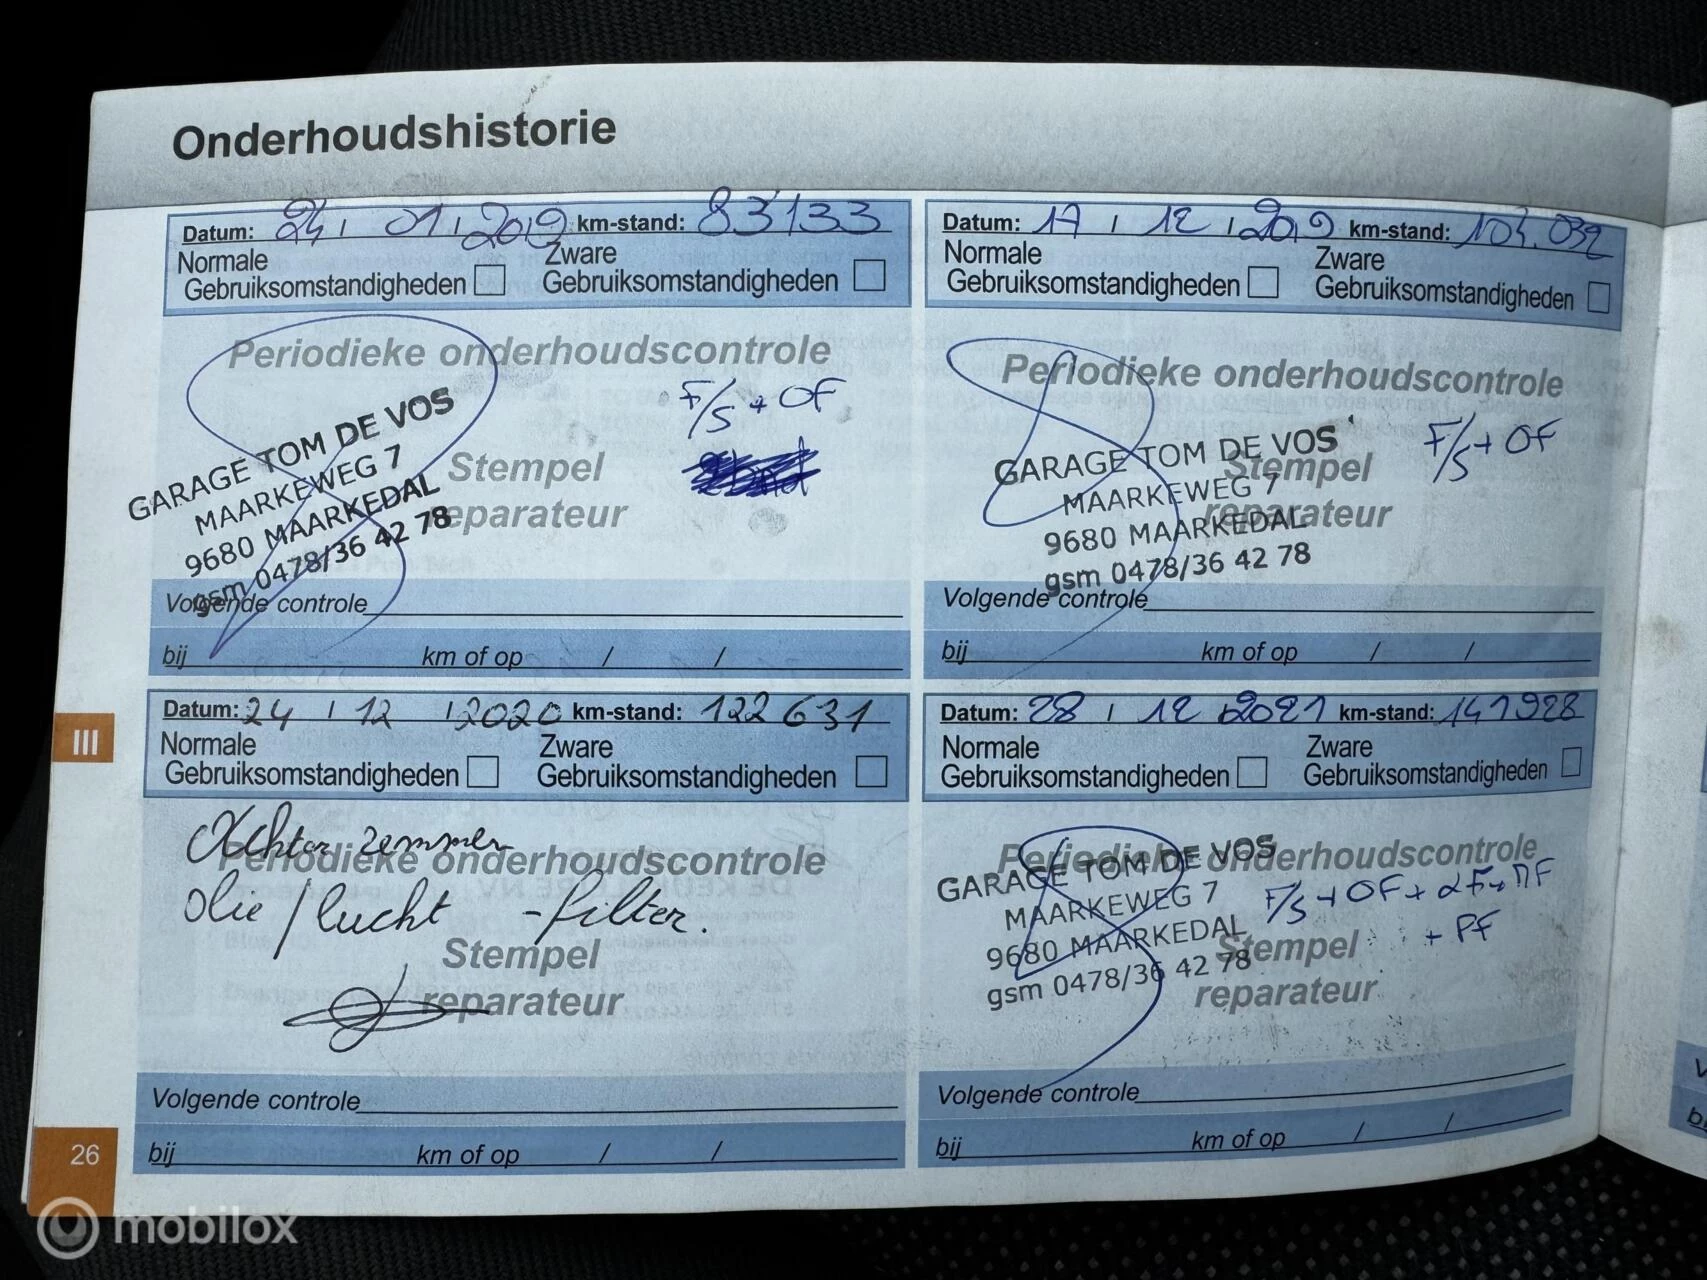 Onderhoudshistorie
Datum: 24 / 01 / 2019 km-stand: 83133
Normale Gebruiksomstandigheden
Zware Gebruiksomstandigheden
Periodieke onderhoudscontrole
F/S + OF
GARAGE TOM DE VOS
MAARKEWEG 7
9680 MAARKEDAL
gsm 0478/36 42 78
Stempel
reparateur
Volgende controle
bij km of op / /
Datum: 17 / 12 / 2019 km-stand: 104.032
Normale Gebruiksomstandigheden
Zware Gebruiksomstandigheden
Periodieke onderhoudscontrole
F/S + OF
GARAGE TOM DE VOS
MAARKEWEG 7
9680 MAARKEDAL
gsm 0478/36 42 78
Stempel
reparateur
Volgende controle
bij km of op / /
III
Datum: 24 / 12 / 2020 km-stand: 122631
Normale Gebruiksomstandigheden
Zware Gebruiksomstandigheden
Achter remmen
Periodieke onderhoudscontrole
olie / lucht - filter.
Stempel
reparateur
Volgende controle
bij km of op / /
Datum: 28 / 12 / 2021 km-stand: 141928
Normale Gebruiksomstandigheden
Zware Gebruiksomstandigheden
Periodieke onderhoudscontrole
GARAGE TOM DE VOS
MAARKEWEG 7
9680 MAARKEDAL
gsm 0478/36 42 78
F/S + OF + LF +
+ PF
Stempel
reparateur
Volgende controle
bij km of op / /
26
mobilox